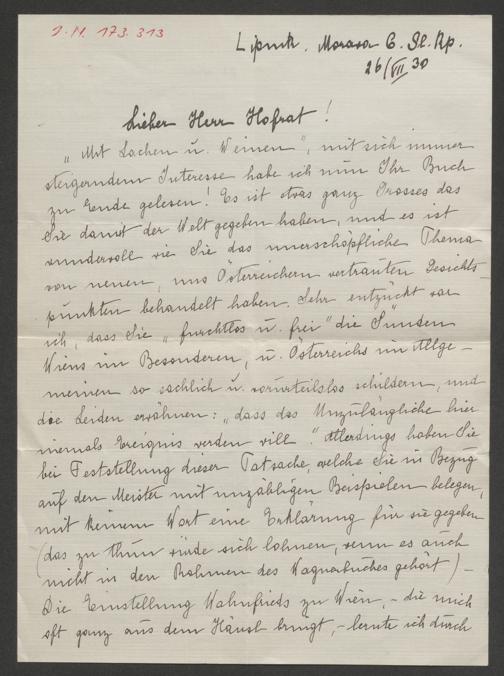 I.N. 173.313
Lipnik. Morava Č. Sl. Rp.
26/VII 30
Lieber Herr Hofrat!
„Mit Lachen u. Weinen", mit sich immer
steigerndem Interesse habe ich nun Ihr Buch
zu Ende gelesen! Es ist etwas ganz Grosses das
Sie damit der Welt gegeben haben, und es ist
wundervoll wie Sie das unerschöpfliche Thema
von neuen, uns Österreichern vertrauten Gesichts-
punkten behandelt haben. Sehr entzückt war
ich, dass Sie „furchtlos u. frei" die Sünden
Wiens im Besonderen, u. Österreichs im Allge-
meinen so sachlich u. vorurteilslos schildern, und
die Leiden erwähnen: „dass das Unzulängliche hier
niemals Ereignis werden will." Allerdings haben Sie
bei Feststellung dieser Tatsache, welche Sie in Bezug
auf den Meister mit unzähligen Beispielen belegen,
mit keinem Wort eine Erklärung für sie gegeben
(das zu thun würde sich lohnen, wenn es auch
nicht in den Rahmen des Wagnerbuches gehört) –
Die Einstellung Wahnfrieds zu Wien, – die mich
oft ganz aus dem Häusl bringt, – lernte ich durch